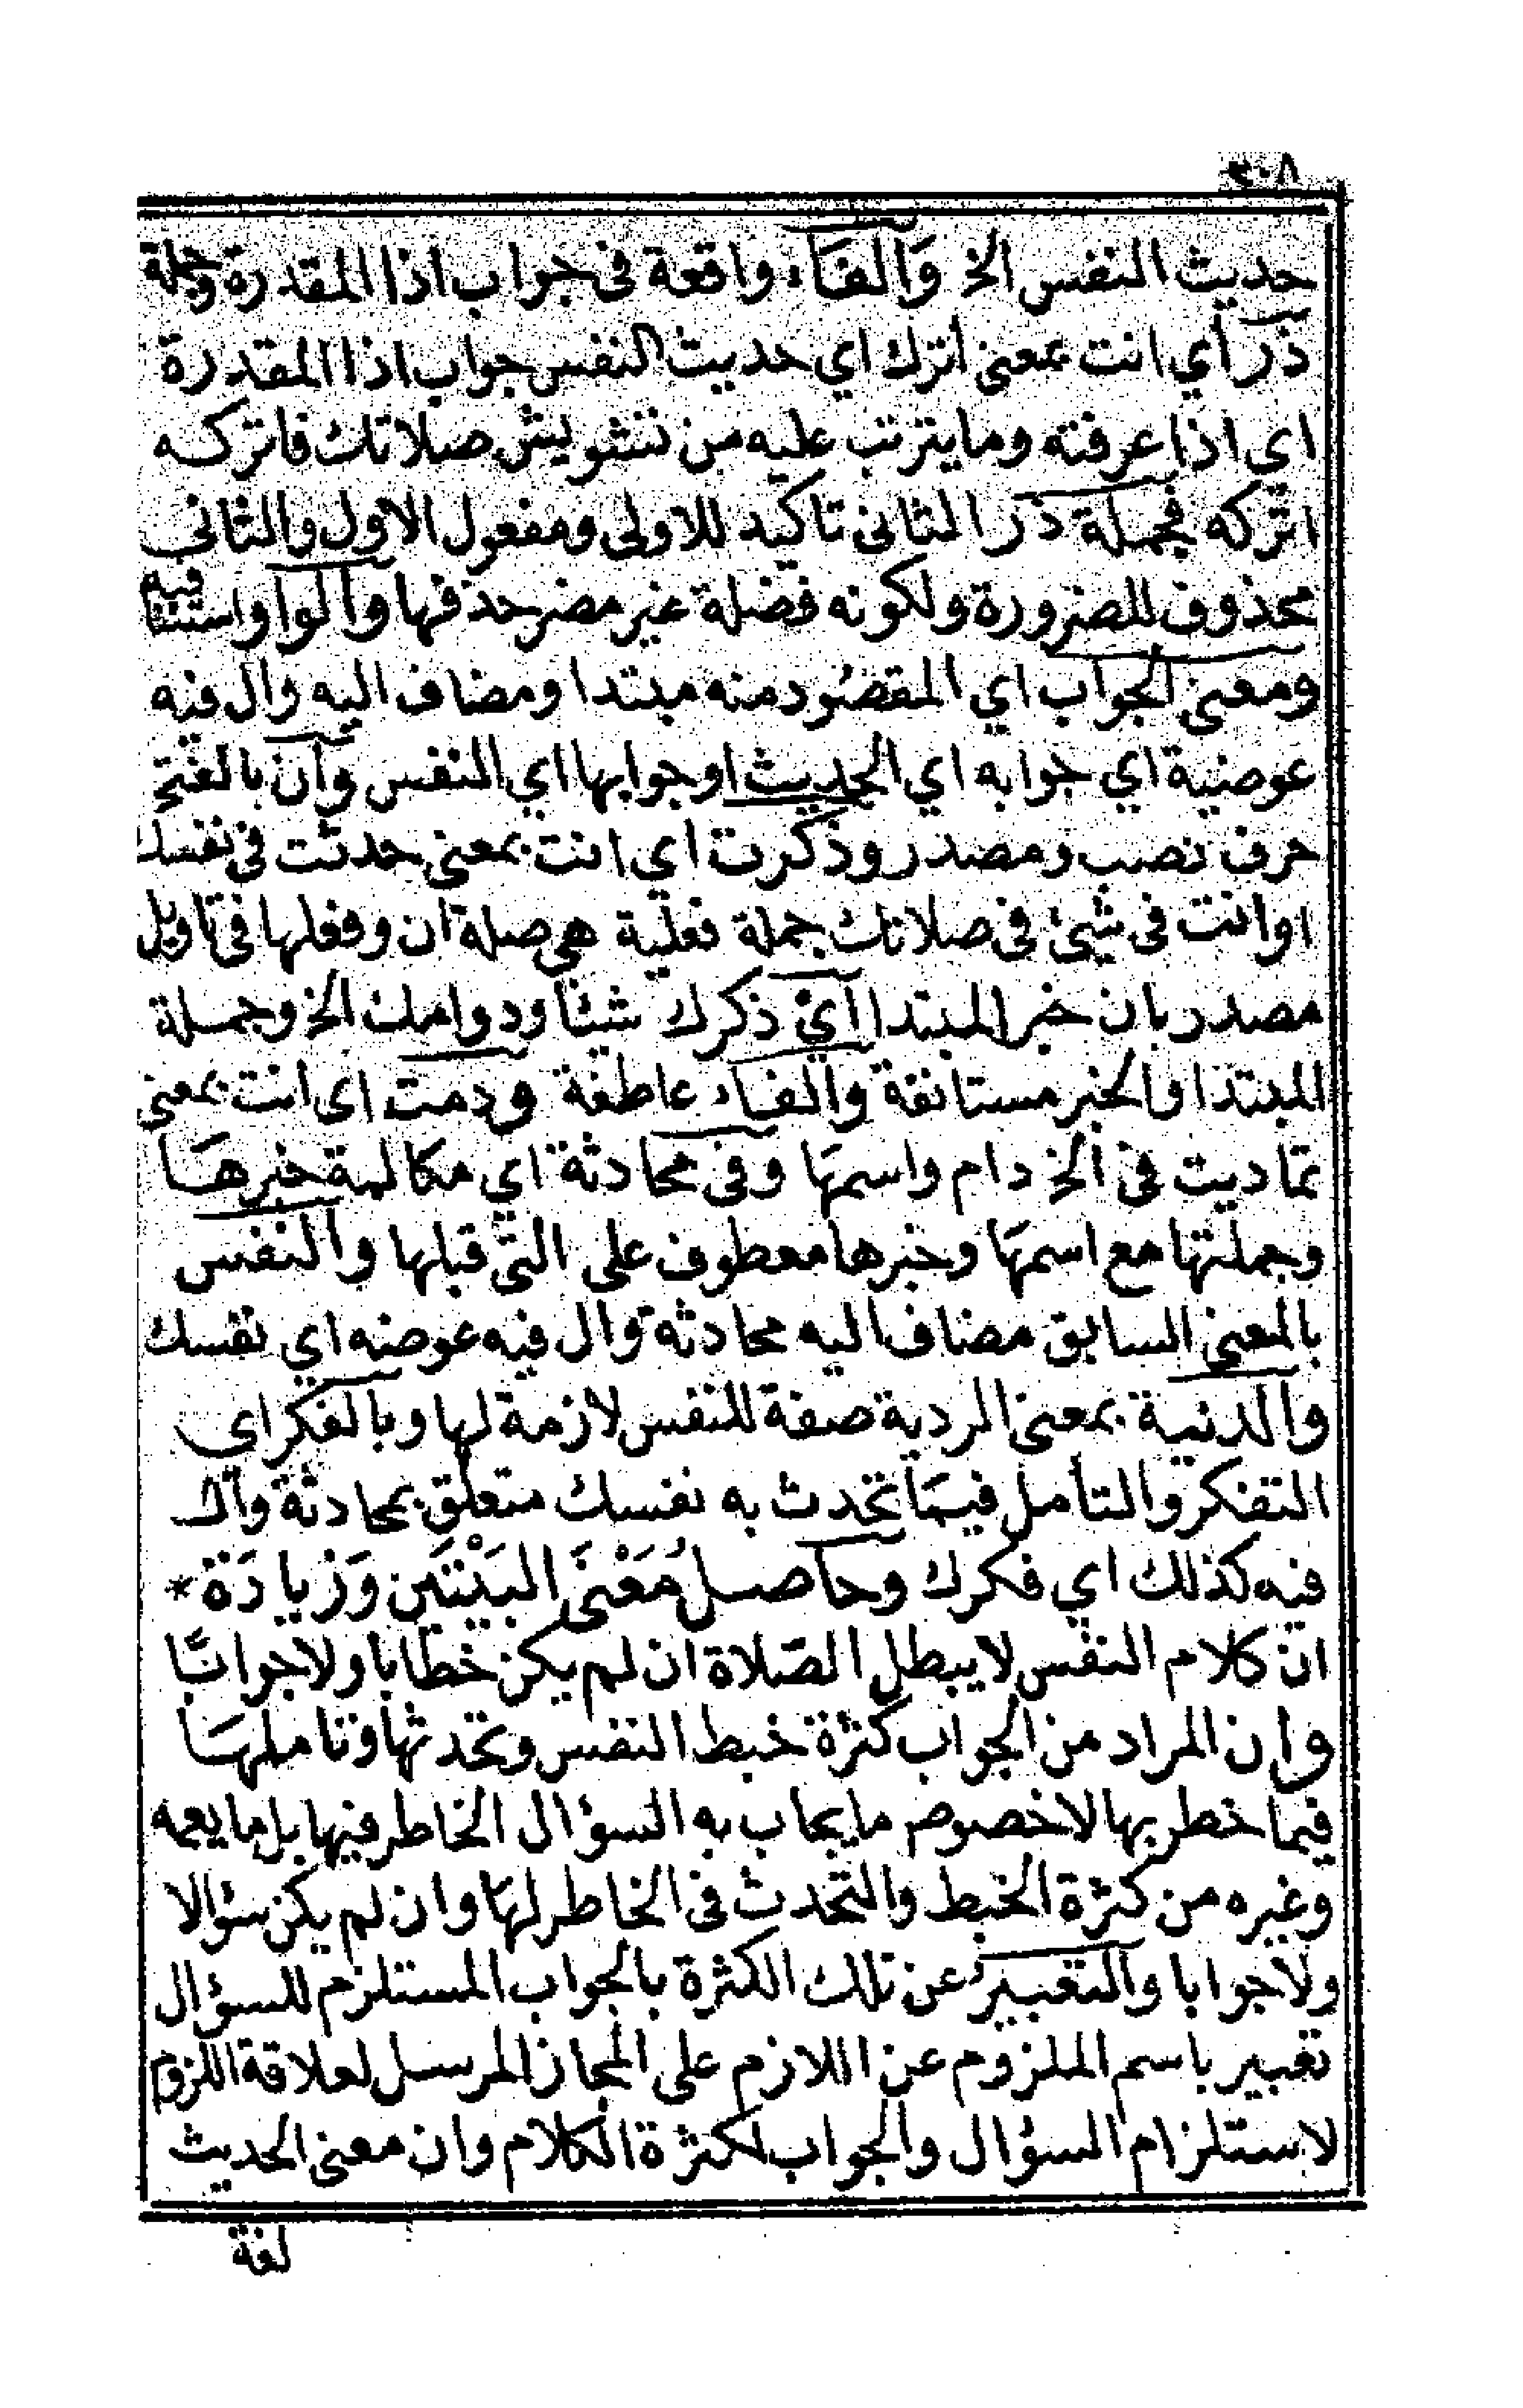 ٣٠٨
حديث النفس الخ والفاء واقعة فى جواب اذا المقدرة وجملة
ذر أي انت بمعنى اترك اي حديث النفس جواب اذا المقدرة
اي اذا عرفته وما يترتب عليه من تشويش صلاتك فاتركه
اتركه فجملة ذر الثانى تاكيد للاولى ومفعول الاول والثاني
محذوف للضرورة ولكونه فضلة غير مضر حذفها والواو استئنافيه
ومعنى الجواب اي المقصود منه مبتدا ومضاف اليه وال فيه
عوضية اي جوابه اي الحديث او جوابها اي النفس وان بالفتح
حرف نصب ومصدر وذكرت اي انت بمعنى حدثت فى نفسك
اوانت فى شيئ فى صلاتك جملة فعلية هي صلة ان وفعلها فى تاويل
مصدر بان خبر المبتدا اي ذكرك شيئا ودوامك الخ وجملة
المبتدا والخبر مستانفة والفاء عاطفة ودمت اى انت بمعنى
تماديت فى الخ دام واسمها وفى محادثة اي مكالمة خبرها
وجملتها مع اسمها وخبرها معطوف على التى قبلها والنفس
بالمعنى السابق مضاف اليه محادثة وال فيه عوضه اي نفسك
والدنية بمعنى الردية صفة للنفس لازمة لها وبالفكر اي
التفكر والتأمل فيما تحدث به نفسك متعلق بمحادثة وال
فيه كذلك اي فكرك وحاصل معنى البيتين وزيادة *
ان كلام النفس لا يبطل الصلاة ان لم يكن خطابا ولا جوابا
وان المراد من الجواب كثرة خبط النفس وتحدثها وتاملها
فيما خطر بها لا خصوص ما يجاب به السؤال الخاطر فيها بل ما يعمه
وغيره من كثرة الخبط والتحدث فى الخاطر لها وان لم يكن سؤالا
ولا جوابا والتعبير عن تلك الكثرة بالجواب المستلزم للسؤال
تعبير باسم الملزوم عن اللازم على المجاز المرسل لعلاقة اللزوم
لاستلزام السؤال والجواب لكثرة الكلام وان معنى الحديث
لغة